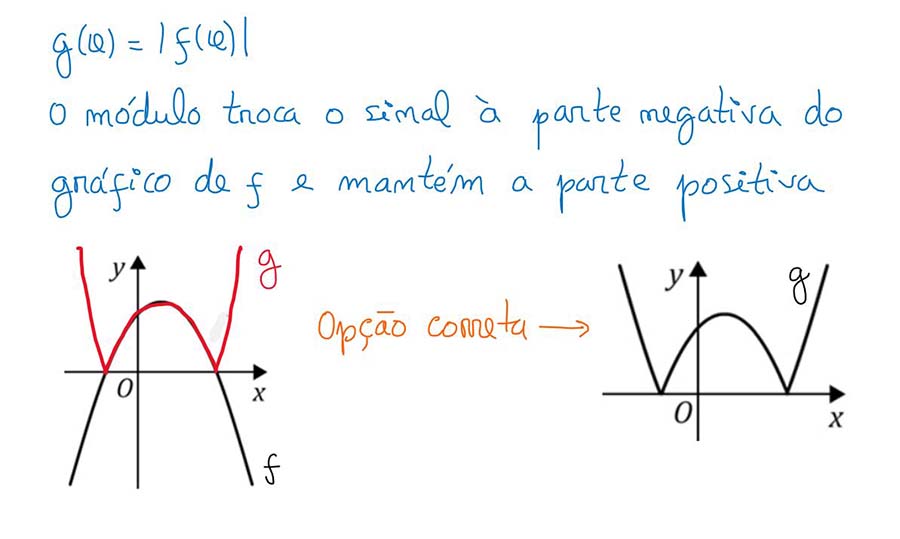 g(x) = |f(x)|
O módulo troca o sinal à parte negativa do
gráfico de f e mantém a parte positiva
y
g
O
x
f
Opção correta →
y
g
O
x